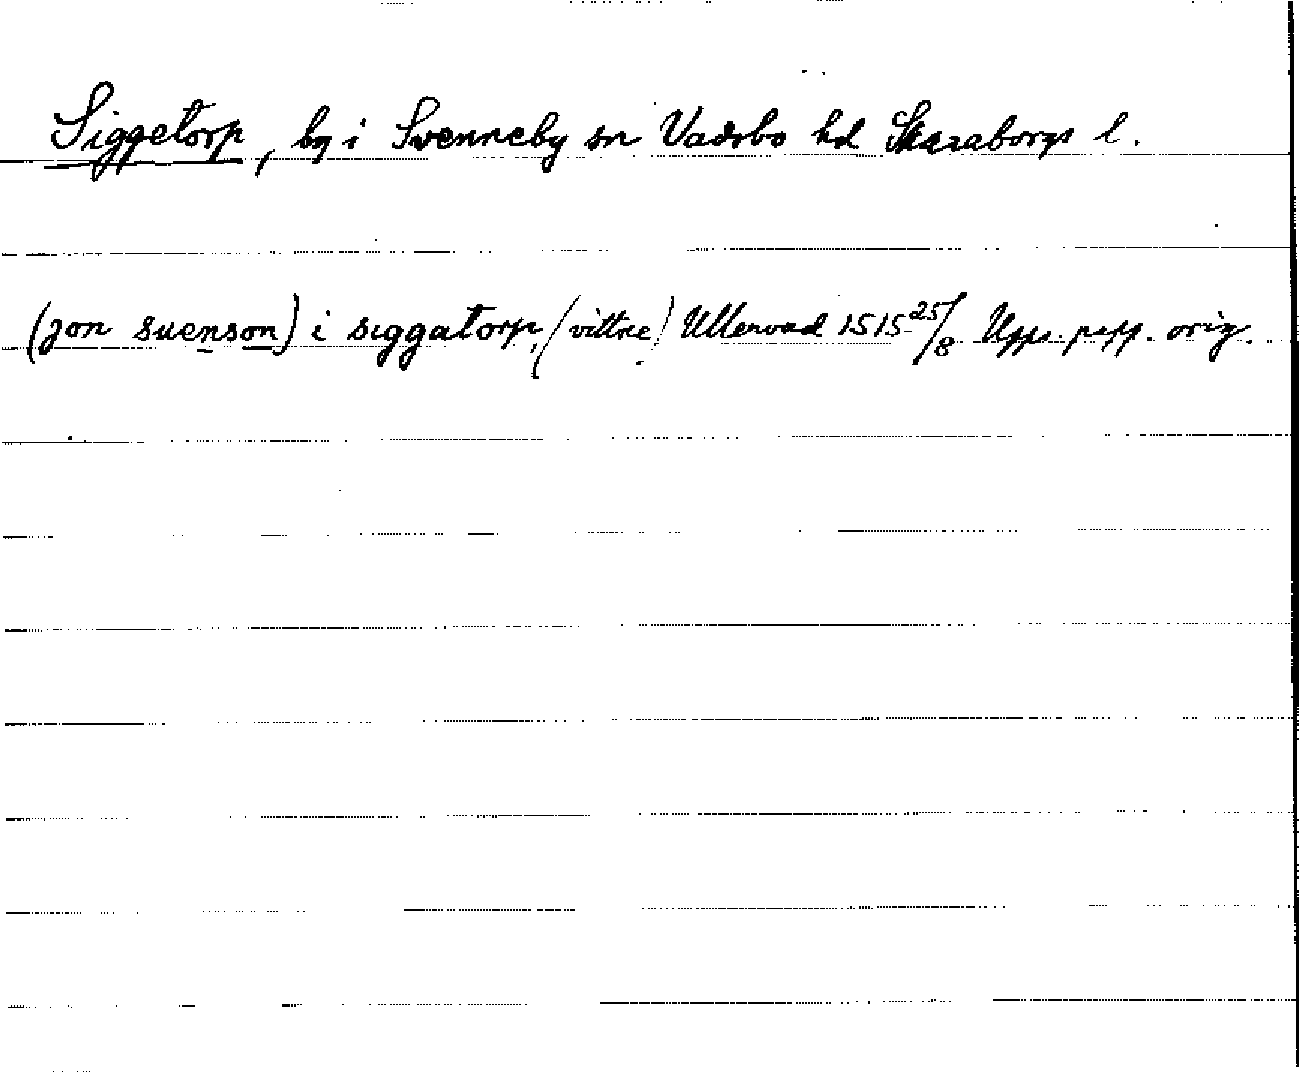 Siggetorp, by i Svenneby sn Vadsbo hd Skaraborgs l.
(jon suenson) i siggatorp, (vittne) Ullervad 1515 25/8 Upps. papp. orig.